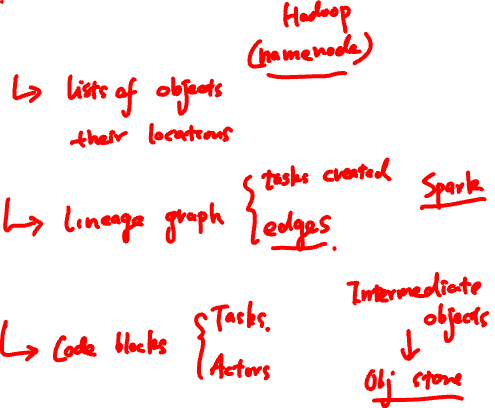 Hadoop
(namenode)
↳ lists of objects
their locations
↳ Lineage graph { tasks created
edges.
Spark
↳ Code blocks { Tasks.
Actors
Intermediate
objects
↓
Obj store